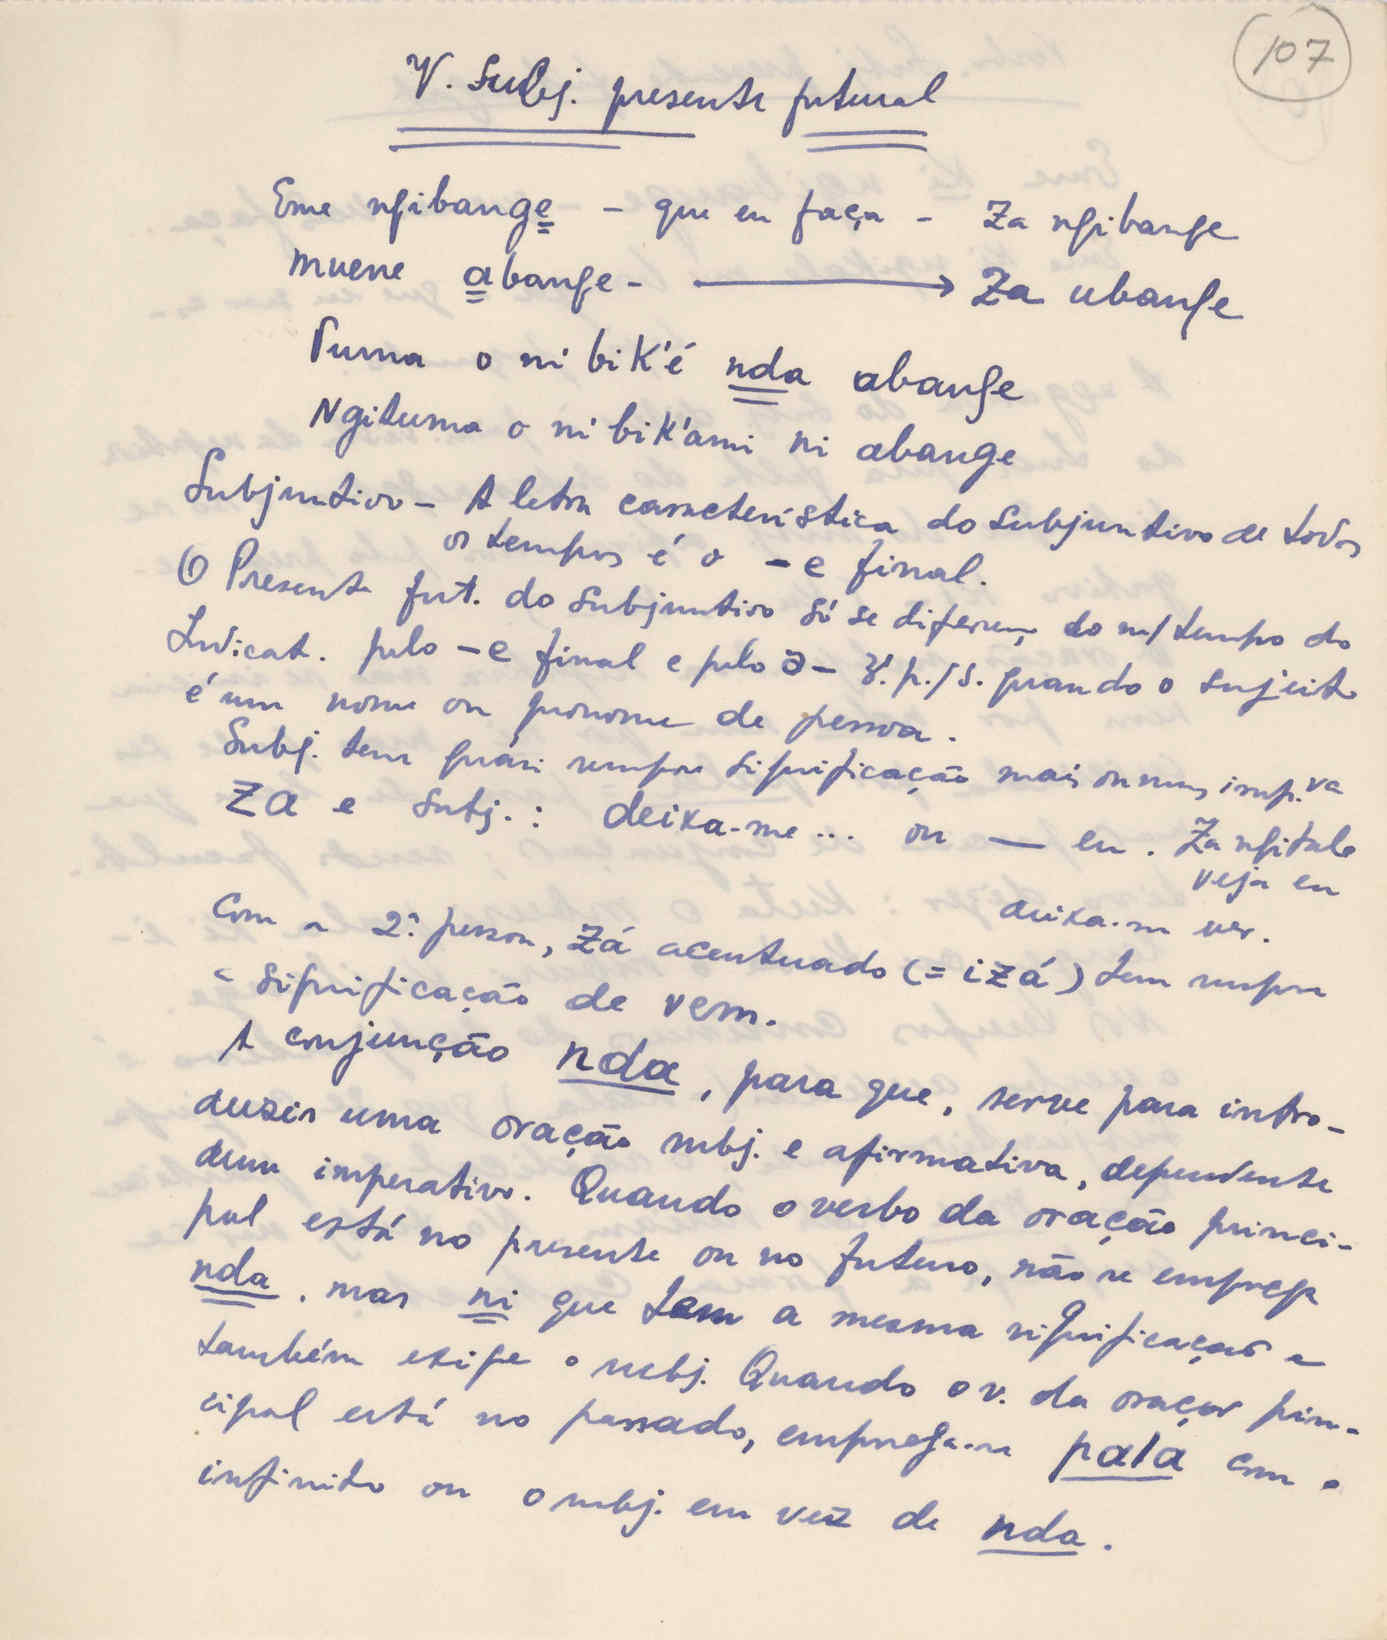 107
V. Subj. presente futural
Eme ngibange - que eu faça - Za ngibange
Muene abange - Za ubange
Tuma o ni bik'é nda abange
Ngituma o ni bik'ami ni abange
Subjuntivo - A letra característica do subjuntivo de todos
os tempos é o -e final.
O Presente fut. do subjuntivo só se diferenç do m/ tempo do
Indicat. pelo -e final e pelo a- 3ª. p./s. quando o sujeito
é um nome ou pronome de pessoa.
Subj. tem quási sempre significação mais ou menos imp.va
Za e subj.: deixa-me ... ou — eu. Za ngitale
veja eu
deixa-me ver.
Com a 2ª. pessoa, Zá acentuado (= izá) tem sempre
a significação de vem.
A conjunção nda, para que, serve para intro-
duzir uma oração subj. e afirmativa, dependente
dum imperativo. Quando o verbo da oração princi-
pal está no presente ou no futuro, não se emprega
nda, mas ni que tem a mesma significação e
também exige o subj. Quando o v. da oração prin-
cipal está no passado, emprega-se pala com o
infinito ou o subj. em vez de nda.